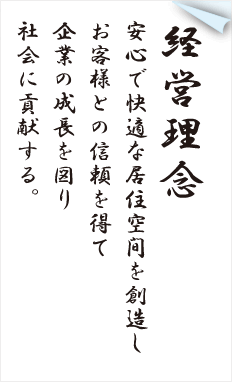 経営理念
安心で快適な居住空间を創造し
お客様との信頼を得て
企業の成長を図り
社会に貢献する。